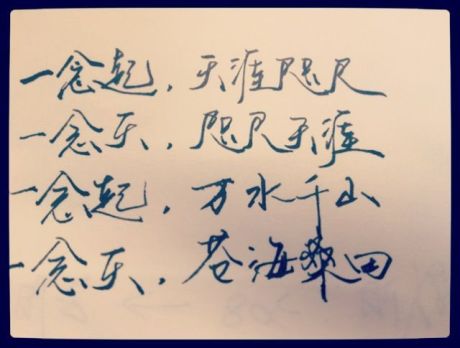 一念起，天涯咫尺
一念灭，咫尺天涯
一念起，万水千山
一念灭，苍海桑田